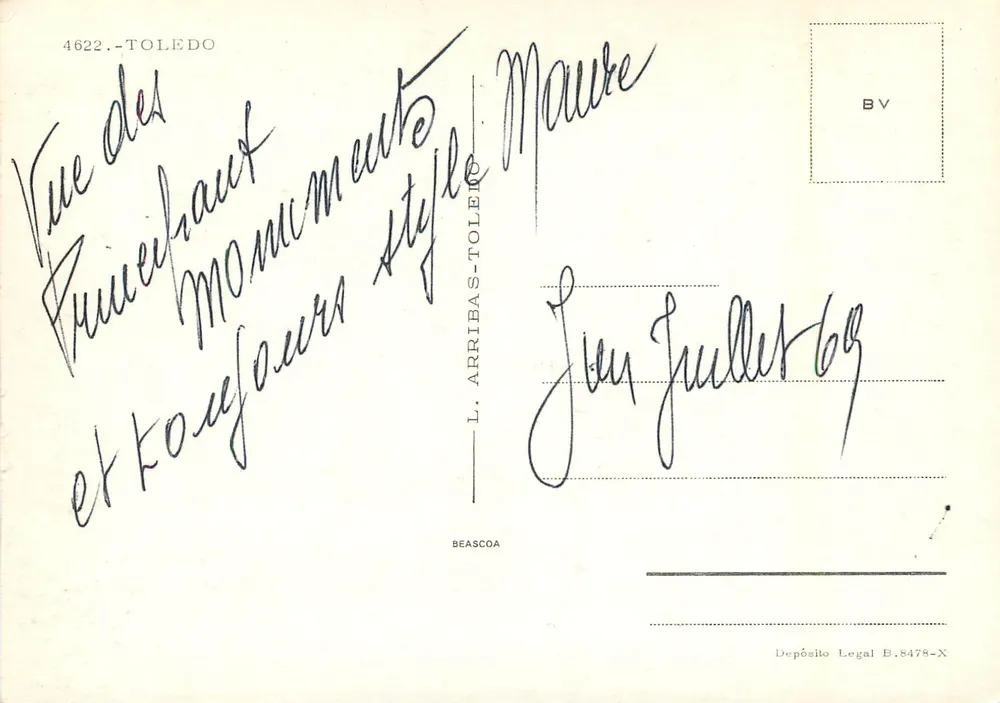 4622.-TOLEDO
Vue des
Principaux
monuments
et toujours style Maure
BV
L. ARRIBAS-TOLEDO
Juin Juillet 69
BEASCOA
Depósito Legal B.8478-X